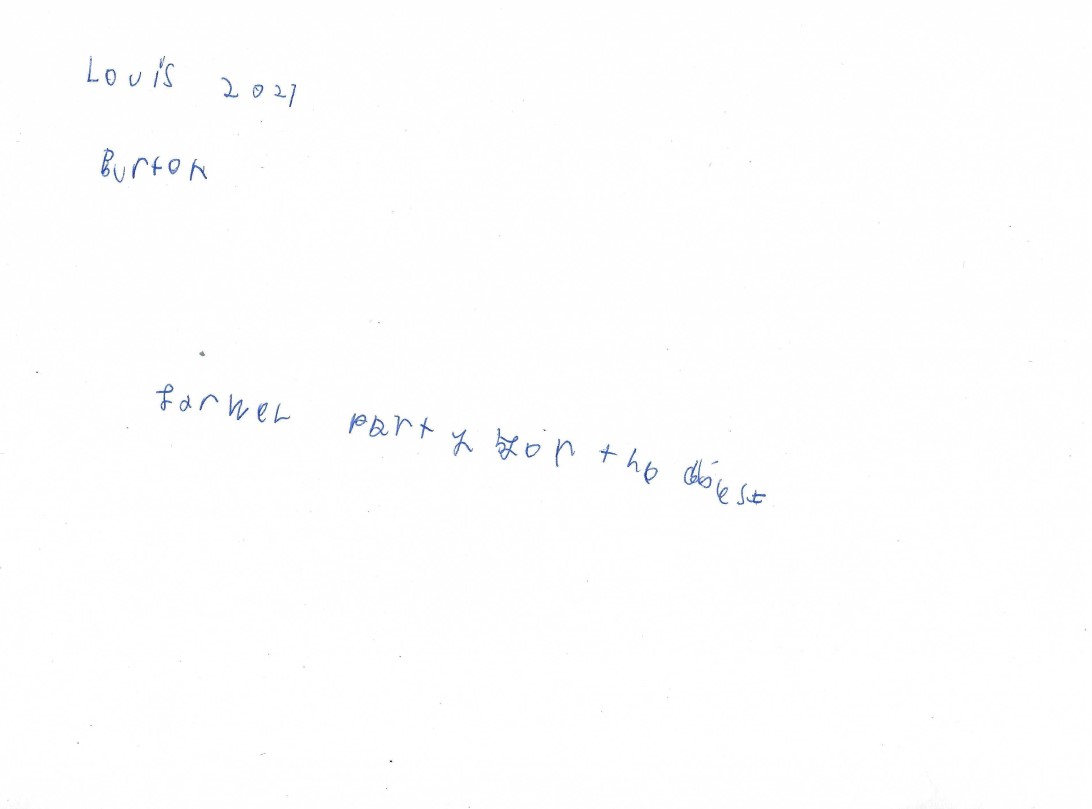 Louis 2021
Burton
farwel party for the